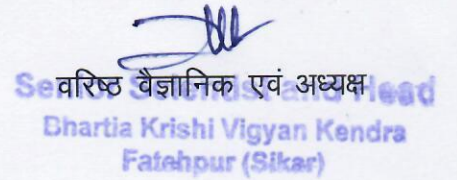 वरिष्ठ वैज्ञानिक एवं अध्यक्ष
Senior Scientist and Head
Bhartia Krishi Vigyan Kendra
Fatehpur (Sikar)